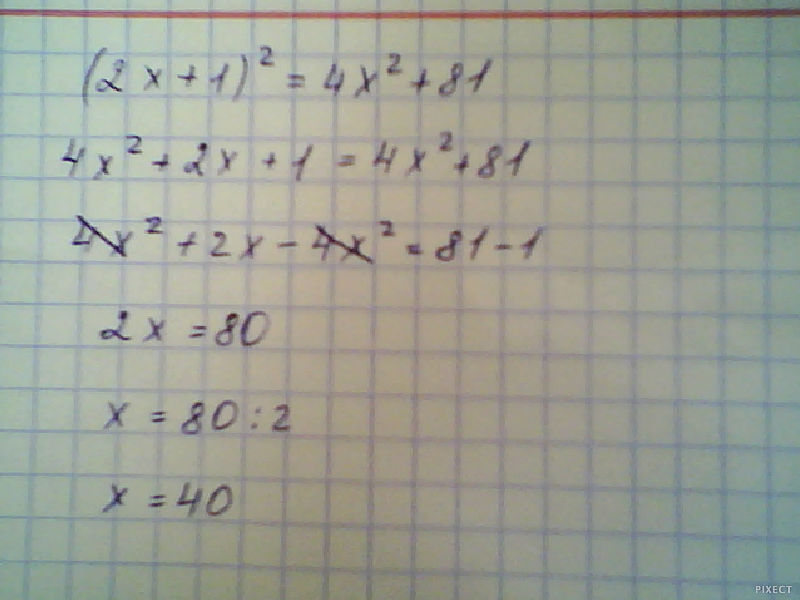 (2x+1)² = 4x²+81
4x²+2x+1 = 4x²+81
4x²+2x-4x² = 81-1
2x = 80
x = 80:2
x = 40
PIXECT